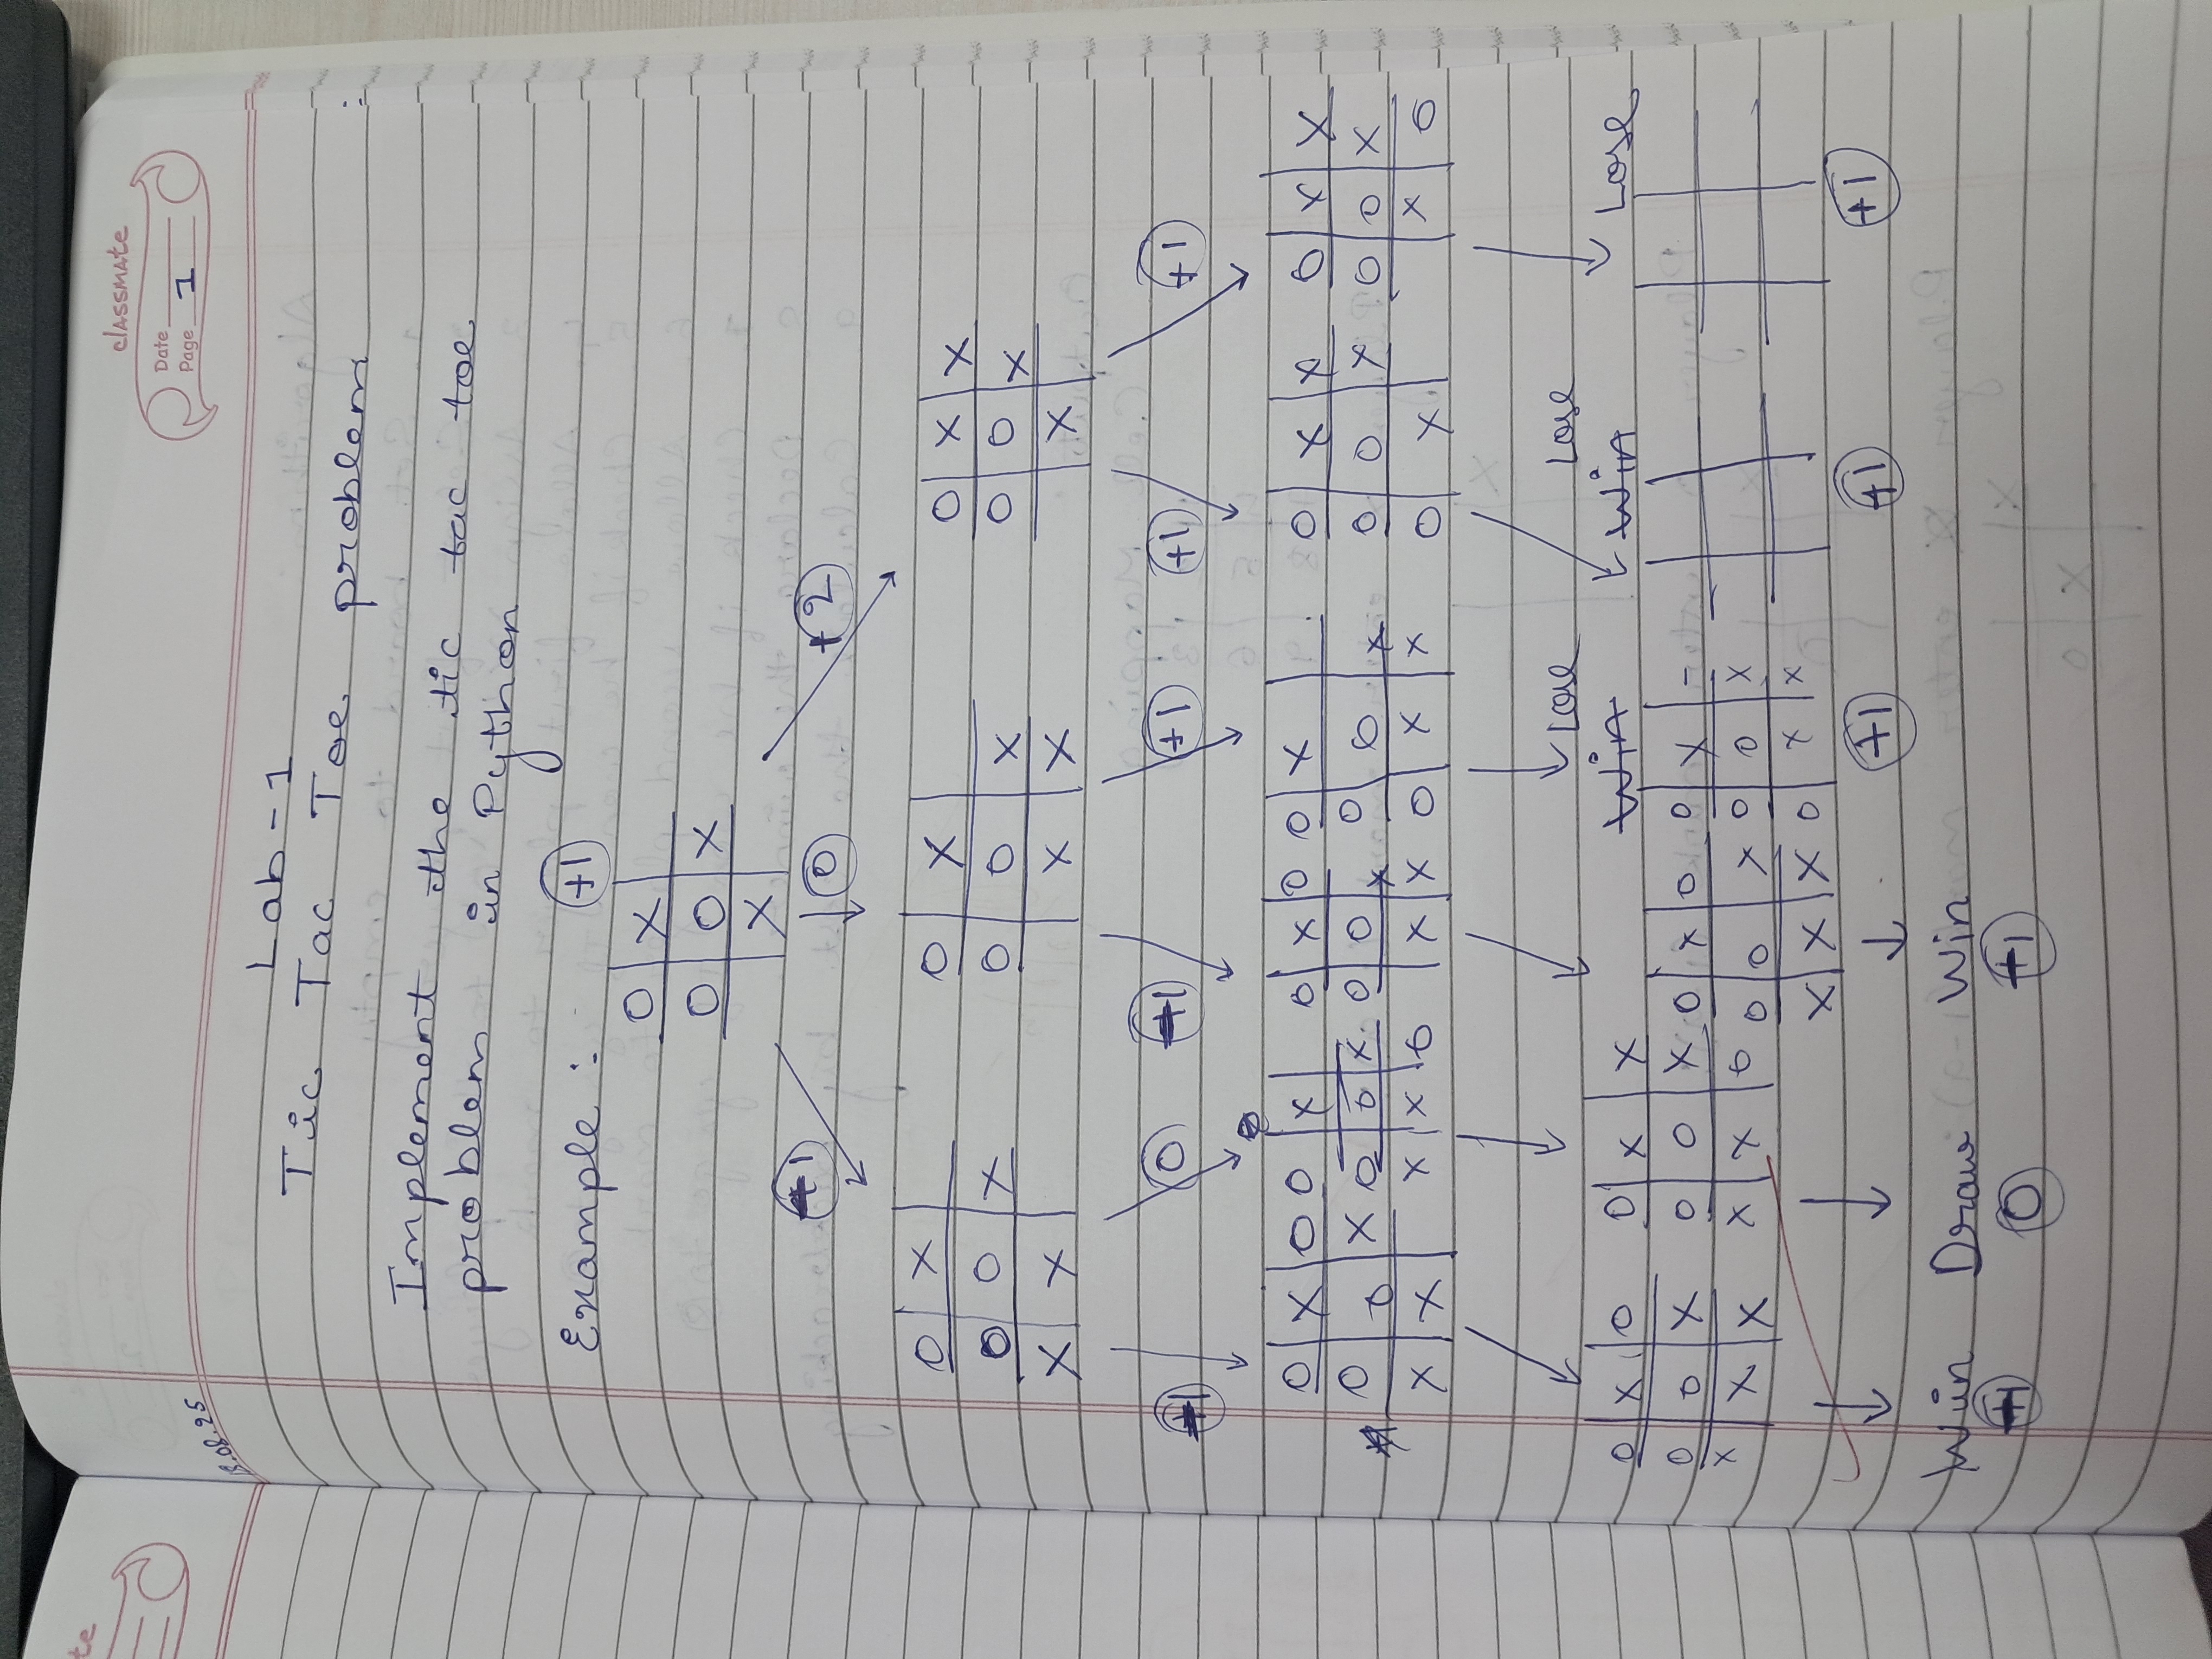 te
classmate
Date
Page 1
18.08.25
Lab-1
Tic Tac Toe problem :
Implement the tic tac toe
problem in Python
Example : +1
O X
O O X
X
+1 0 +2
O X O X O X X
O O X O O X O O X
X X X X X
+1 0 +1 +1 +1 +1
O X O O X O X O O X O X X O X X
O O X O O X O O X O O X O O X O O X
X X X X O X X O X X O X X O
Lose Lose
Win Win Lose
O X O O X X
O O X O O X O X O O X -
X X X X X O O O X O O X
X X X O X X
+1 +1 +1
Win Draw Win
+1 0 +1